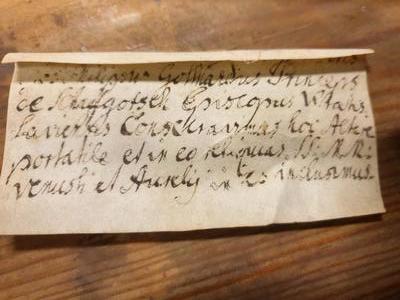 Philippus Gothardus Princeps
de Schaffgotsch Episcopus Wratis
laviensis Consecravimus hoc Altare
portatile et in eo reliquias SS. M. M.
venusti et Aurelij in eo inclusimus.